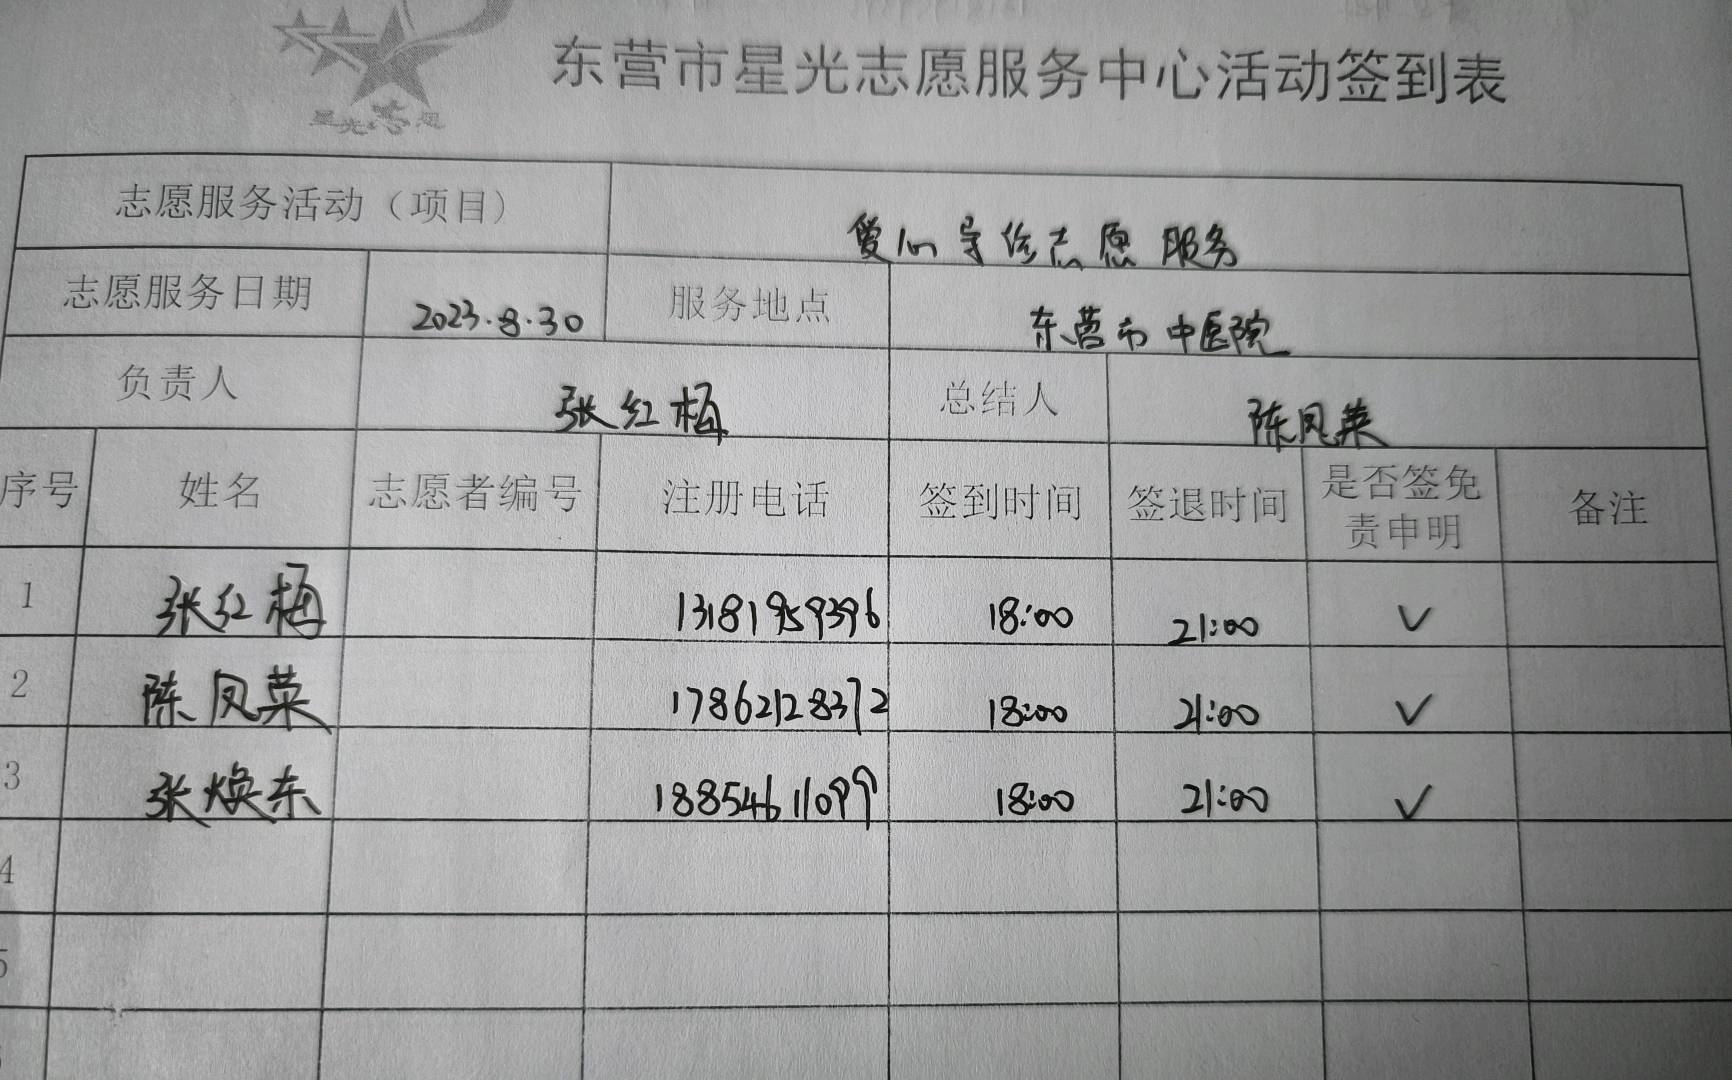 星光志愿
东营市星光志愿服务中心活动签到表
志愿服务活动（项目） 爱心导诊志愿服务
志愿服务日期 2023.8.30 服务地点 东营市中医院
负责人 张红梅 总结人 陈凤菜
序号 姓名 志愿者编号 注册电话 签到时间 签退时间 是否签免责申明 备注
1 张红梅 13181959396 18:00 21:00 ✓
2 陈凤菜 17862128372 18:00 21:00 ✓
3 张焕东 18854611099 18:00 21:00 ✓
4
5